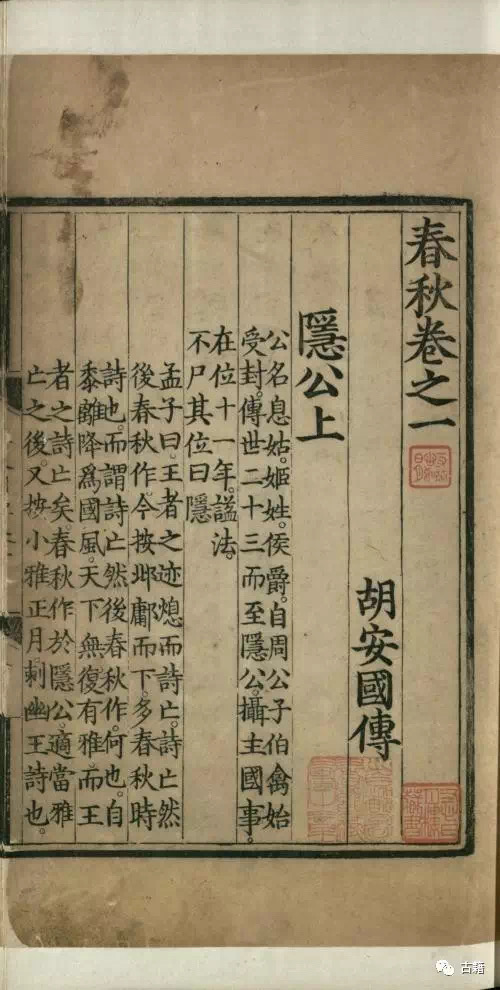 春秋卷之一
胡安國傳
隱公上
公名息姑。姬姓。侯爵。自周公子伯禽始
受封。傳世二十三而至隱公。攝主國事。
在位十一年。謚法。
不尸其位曰隱
孟子曰。王者之迹熄而詩亡。詩亡然
後春秋作。今按邶鄘而下。多春秋時
詩也。而謂詩亡然後春秋作。何也。自
黍離降爲國風。天下無復有雅。而王
者之詩亡矣。春秋作於隱公。適當雅
亡之後。又按小雅正月刺幽王詩也。
古籍